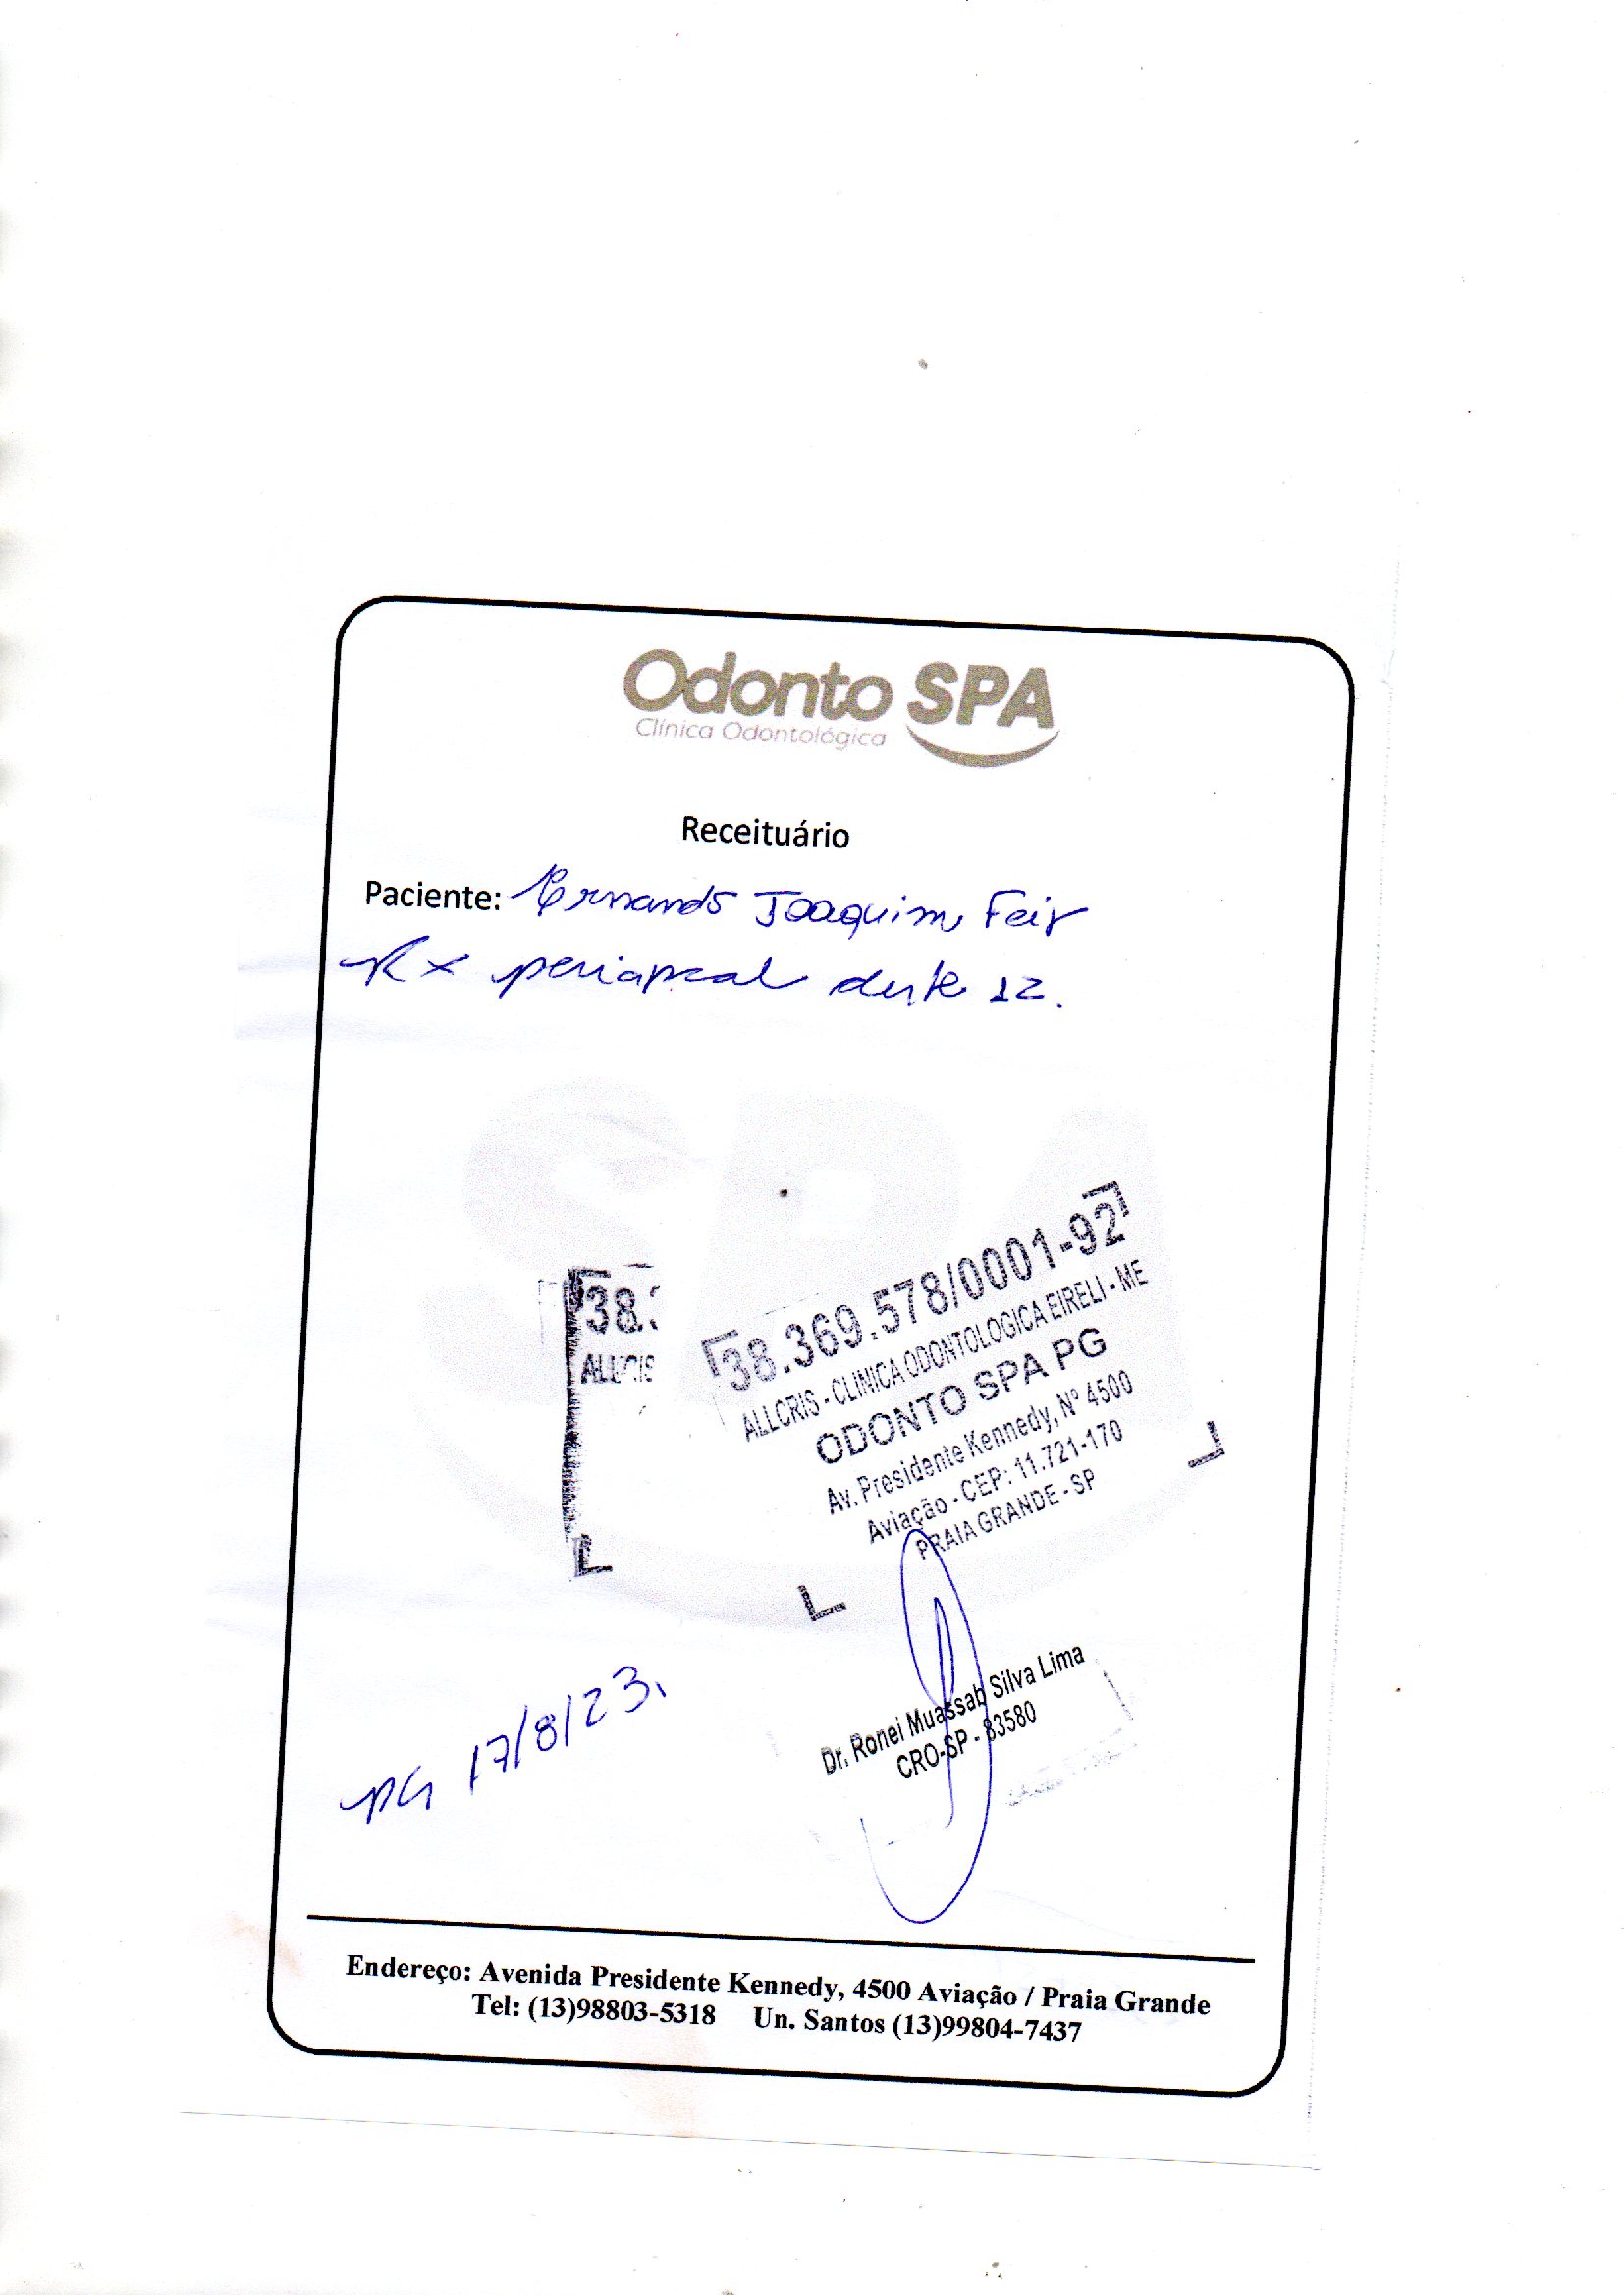 Odonto SPA
Clínica Odontológica
Receituário
Paciente: Joaquim Feir
Rx periapical dente 12.
SPA
38.
ALLCRIS
38.369.578/0001-92
ALLCRIS - CLINICA ODONTOLOGICA EIRELI - ME
ODONTO SPA PG
Av. Presidente Kennedy, Nº 4500
Aviação - CEP: 11.721-170
PRAIA GRANDE - SP
PG 17/8/23.
Dr. Ronei Muassab Silva Lima
CRO-SP - 83580
Endereço: Avenida Presidente Kennedy, 4500 Aviação / Praia Grande
Tel: (13)98803-5318 Un. Santos (13)99804-7437